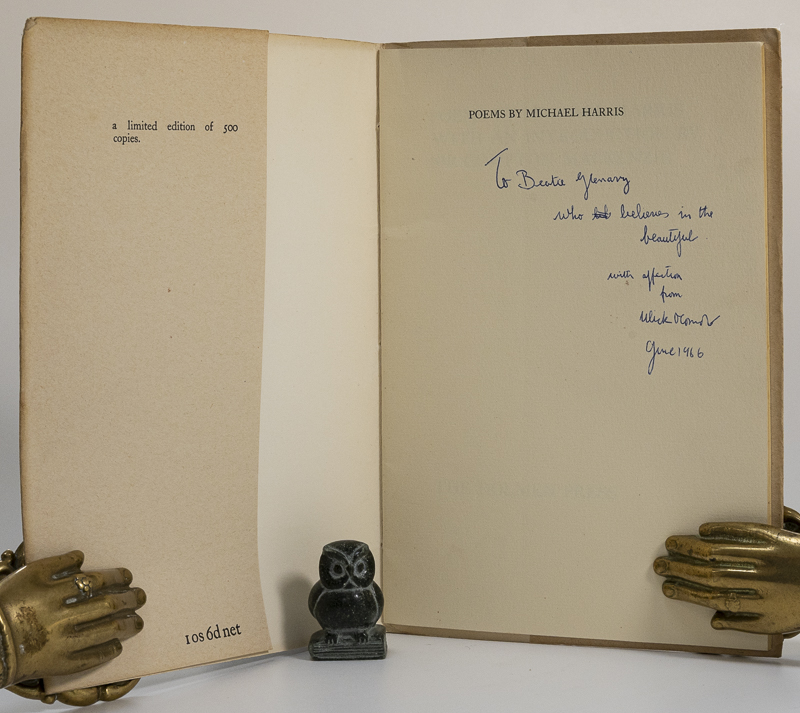 a limited edition of 500
copies.
10s 6d net
POEMS BY MICHAEL HARRIS
To Beatie Glenavy
who believes in the
beautiful
with affection
from
Ulick O'Connor
June 1966
THE DOLMEN PRESS